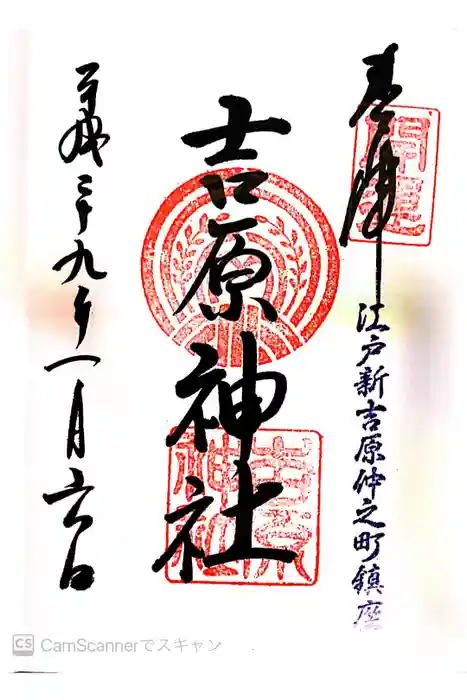 奉拝
開運
江戸新吉原仲之町鎮座
吉原神社
吉原
神社
平成二十九年一月六日
CS CamScannerでスキャン